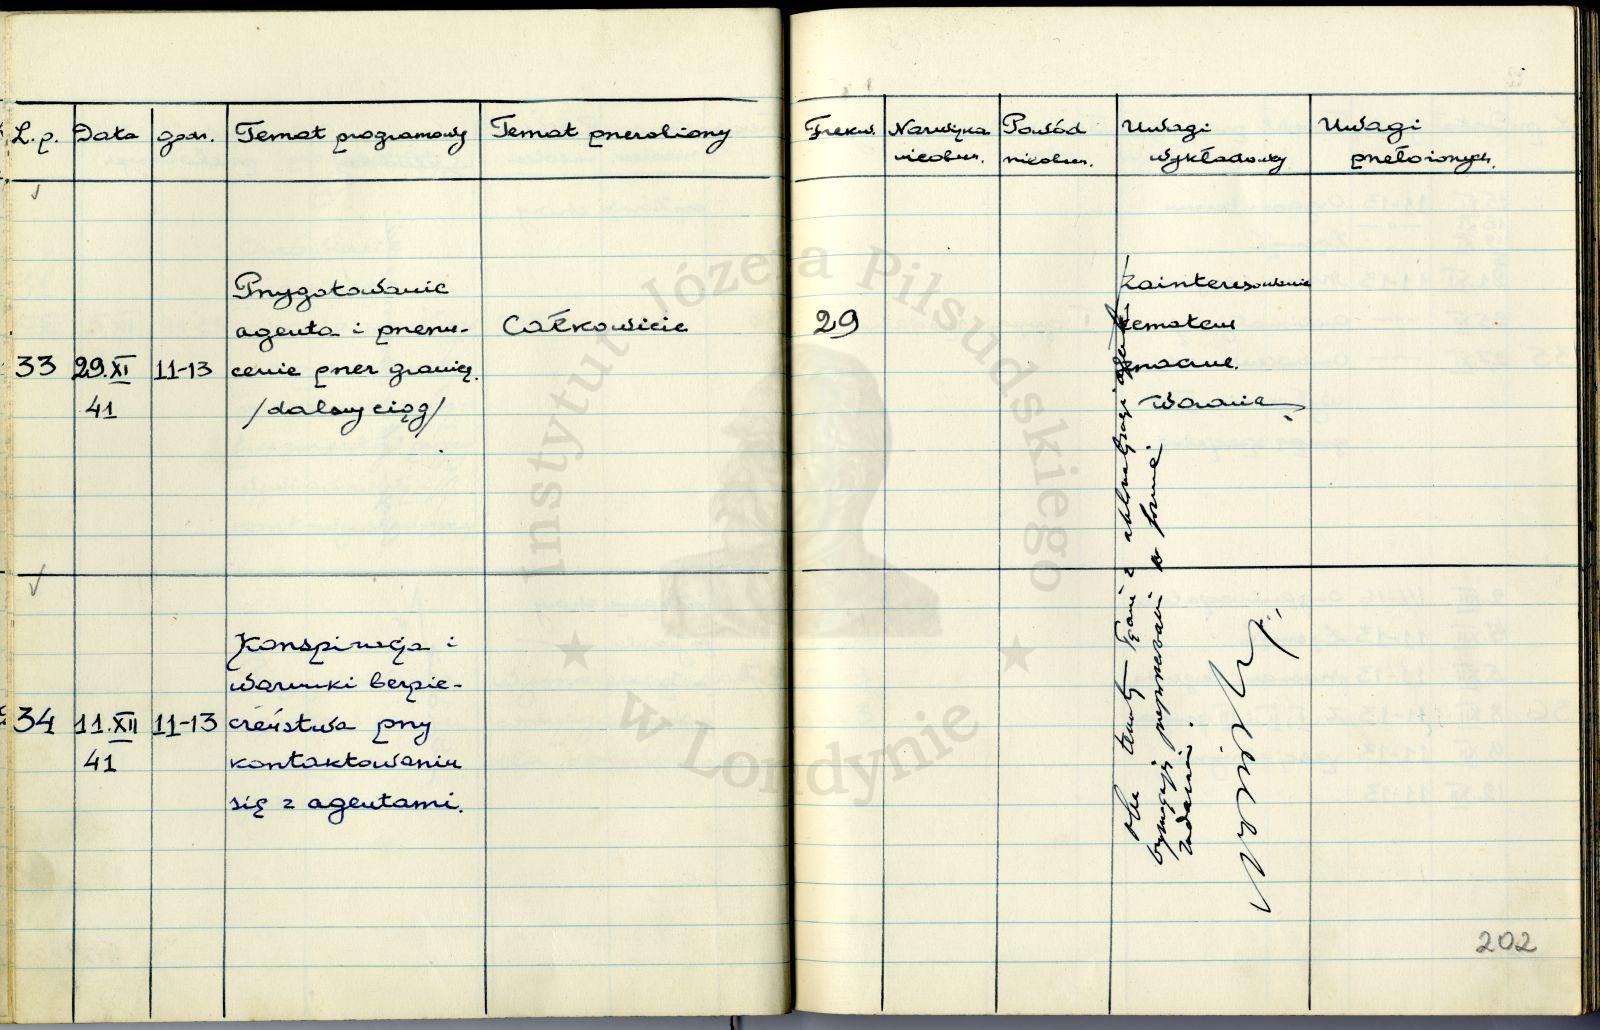 L.p. Data godz. Temat programowy Temat przerobiony
Frekw. Nazwiska nieobecn. Powód nieobecn. Uwagi wykładowcy Uwagi przełożonych.
33 29.XI 41 11-13
Przygotowanie
agenta i przerzu-
cenie przez granicę.
/dalszy ciąg/
Całkowicie
29
Zainteresowanie
tematem
znaczne.
34 11.XII 41 11-13
Konspiracja i
warunki bezpie-
czeństwa przy
kontaktowaniu
się z agentami.
Oba tematy z
wymagają w formie
zadania.
Instytut Józefa Piłsudskiego
w Londynie
202